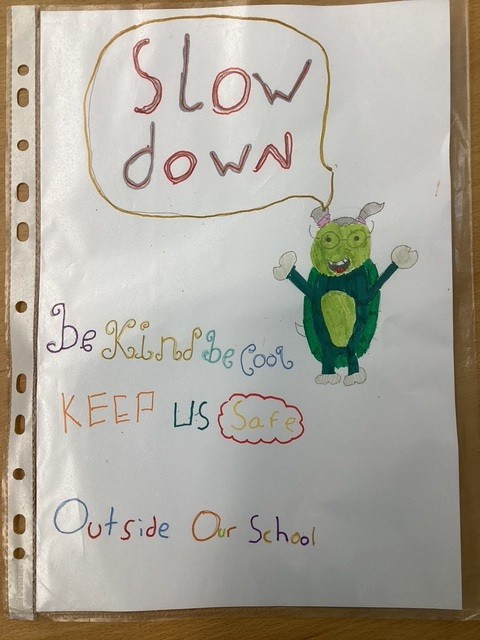 Slow
down
be Kind be Cool
KEEP US Safe
Outside Our School